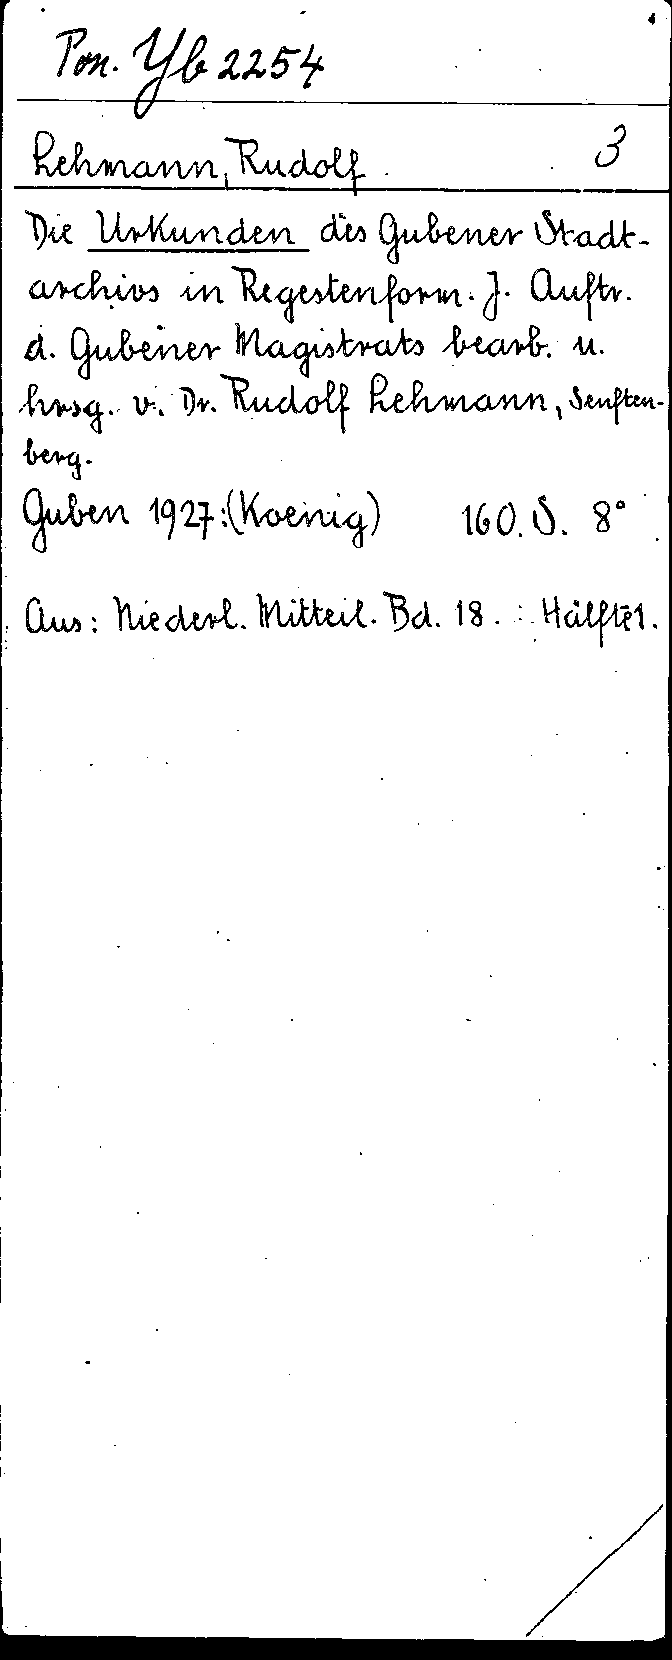 Pon. Yb 2254
Lehmann, Rudolf. 3
Die Urkunden des Gubener Stadt-
archivs in Regestenform. J. Auftr.
d. Gubener Magistrats bearb. u.
hrsg. v. Dr. Rudolf Lehmann, Senften-
berg.
Guben 1927: (Koenig) 160. S. 8°
Aus: Niederl. Mitteil. Bd. 18. : Hälfte 1.